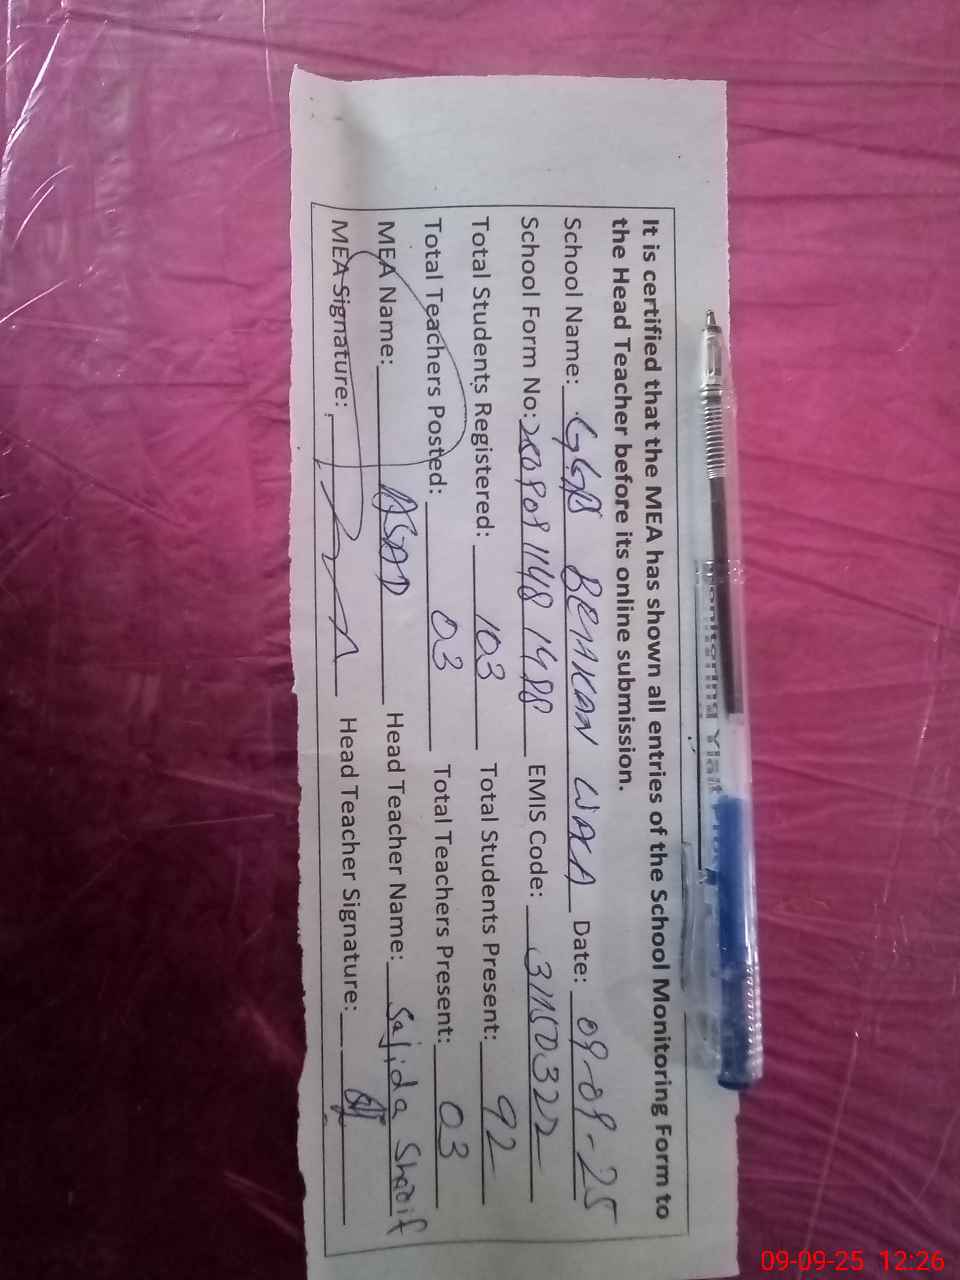 It is certified that the MEA has shown all entries of the School Monitoring Form to
the Head Teacher before its online submission.
School Name: GGPS BEHKAN WALA Date: 09-09-25
School Form No: EMIS Code: 31150322
Total Students Registered: 103 Total Students Present: 92
Total Teachers Posted: 03 Total Teachers Present: 03
MEA Name: ASAD Head Teacher Name: Sajida Sharif
MEA Signature: Head Teacher Signature:
09-09-25 12:26